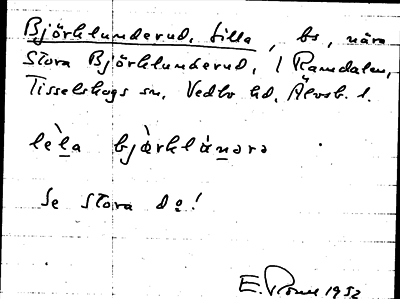 Björklunderud, Lilla, bs, nära
Stora Björklunderud, i Ramdalen,
Tisselskogs sn, Vedbo hd, Älvsb. l.
lè̱la bjə̀rklánərə
Se Stora do!
E. 1952